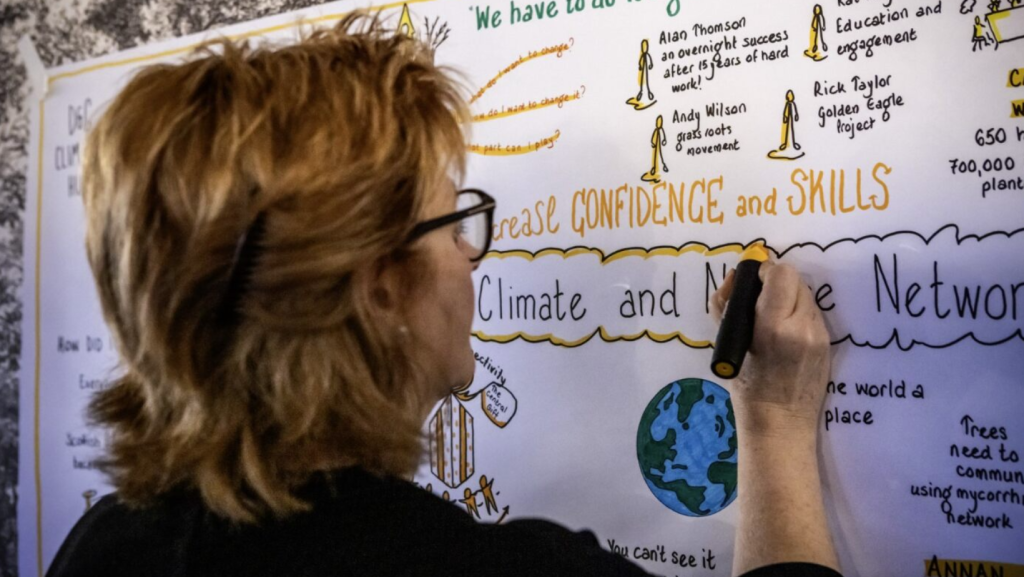 "We have to do
do I want to change?
do I want to change it?
part can I play?
Alan Thomson
an overnight success
after 15 years of hard
work!
Andy Wilson
grass roots
movement
Education and
engagement
Rick Taylor
Golden Eagle
Project
650
700,000
plant
crease CONFIDENCE and SKILLS
Climate and N e Networ
D&G
CLIM
HOW DID
Every
Scottish
ectivity
The
central
belt
ne world a
place
Trees
need to
commun
using mycorrh
network
You can't see it
ANNAN